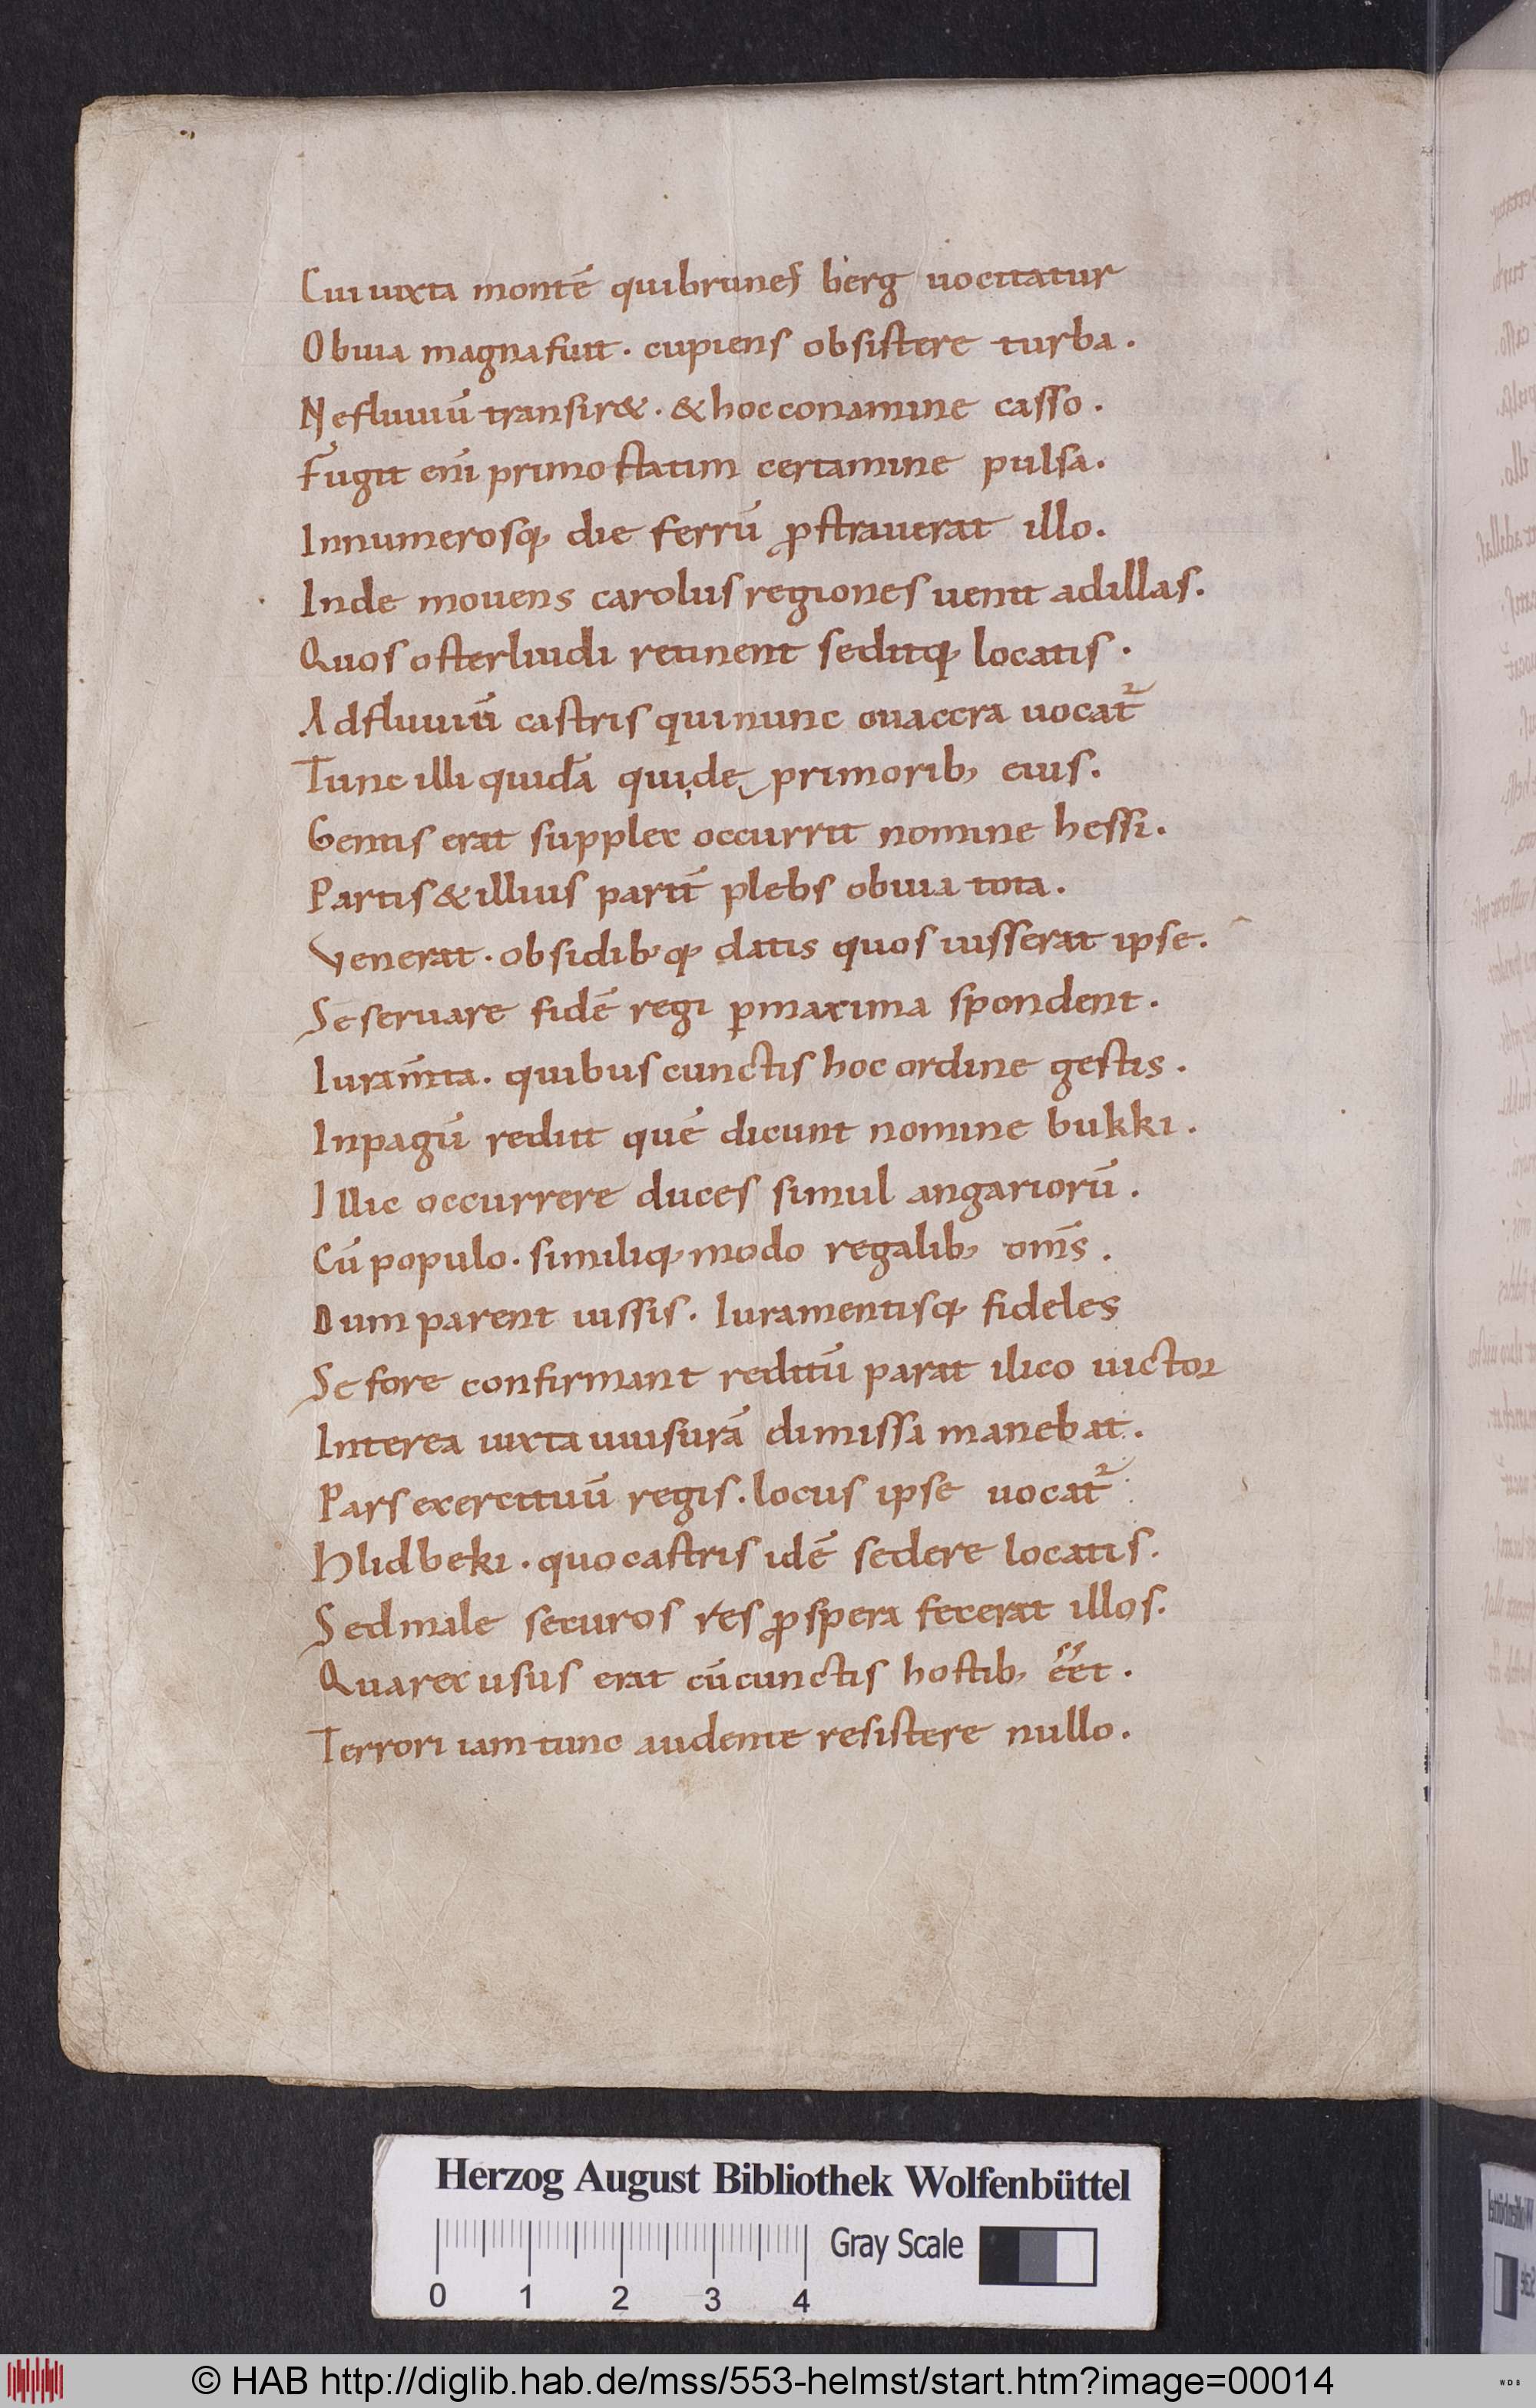 Cui iuxta montē qui brunes berg uocitatur
Obuia magna fuit · cupiens obsistere turba ·
Ne fluuiū transir& · & hoc conamine casso ·
Fugit eni̅ primo statim certamine pulsa ·
Innumerosq; die ferrū ꝓstrauerat illo ·
Inde mouens carolus regiones uenit ad illas ·
Quos osterliudi retinent seditq; locatis ·
Ad fluuiū castris qui nunc ouaccra uocat᷑
Tunc illi quidā qui de primorib; eius ·
Gentis erat supplex occurrit nomine hessi ·
Partis & illius paritē plebs obuia tota ·
Venerat · obsidib; q; datis quos iusserat ipse ·
Se seruare fidē regi ꝑmaxima spondent ·
Iuram̅ta · quibus cunctis hoc ordine gestis ·
In pagū rediit quē dicunt nomine bukki ·
Illic occurrere duces simul angariorū ·
Cū populo · similiq; modo regalib; om̅s ·
Dum parent iussis · Iuramentisq; fideles
Se fore confirmant reditū parat ilico uictor
Interea iuxta uuisurā dimissa manebat ·
Pars exercituū regis · locus ipse uocat᷑ ·
Hlidbeki · quo castris idē sedere locatis ·
Sed male securos res ꝓspera fecerat illos ·
Qua rex usus erat cū cunctis hostib; eēt ·
Terrori iam tunc audente resistere nullo ·
Herzog August Bibliothek Wolfenbüttel
Gray Scale
0 1 2 3 4
© HAB http://diglib.hab.de/mss/553-helmst/start.htm?image=00014